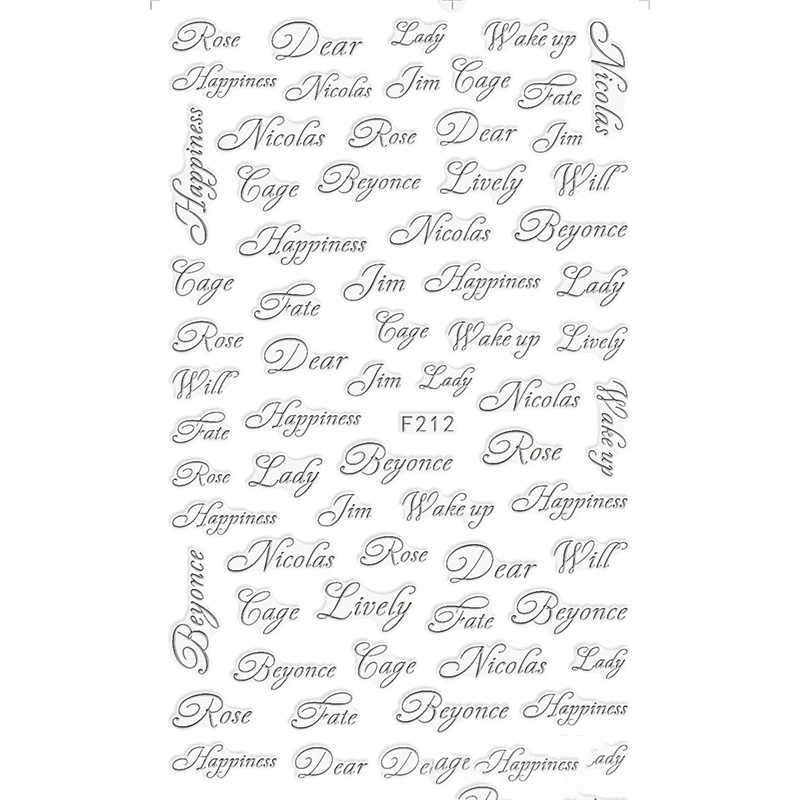 Rose Dear Lady Wake up Nicolas
Happiness Nicolas Jim Cage Fate
Happiness Nicolas Rose Dear Jim
Cage Beyonce Lively Will
Happiness Nicolas Beyonce
Cage Fate Jim Happiness Lady
Rose Dear Cage Wake up Lively
Will Jim Lady Nicolas Wake up
Fate Happiness F212 Rose
Rose Lady Beyonce
Happiness Jim Wake up Happiness
Beyonce Nicolas Rose Dear Will
Cage Lively Fate Beyonce
Beyonce Cage Nicolas Lady
Rose Fate Beyonce Happiness
Happiness Dear De age Happiness ady